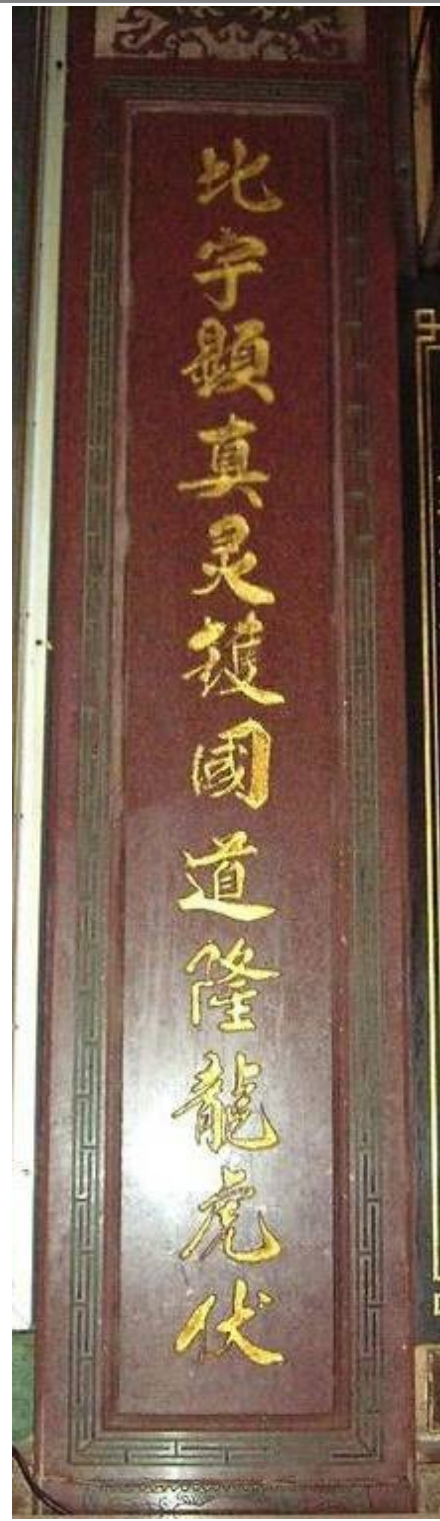 北宇顯真灵護國道隆龍虎伏